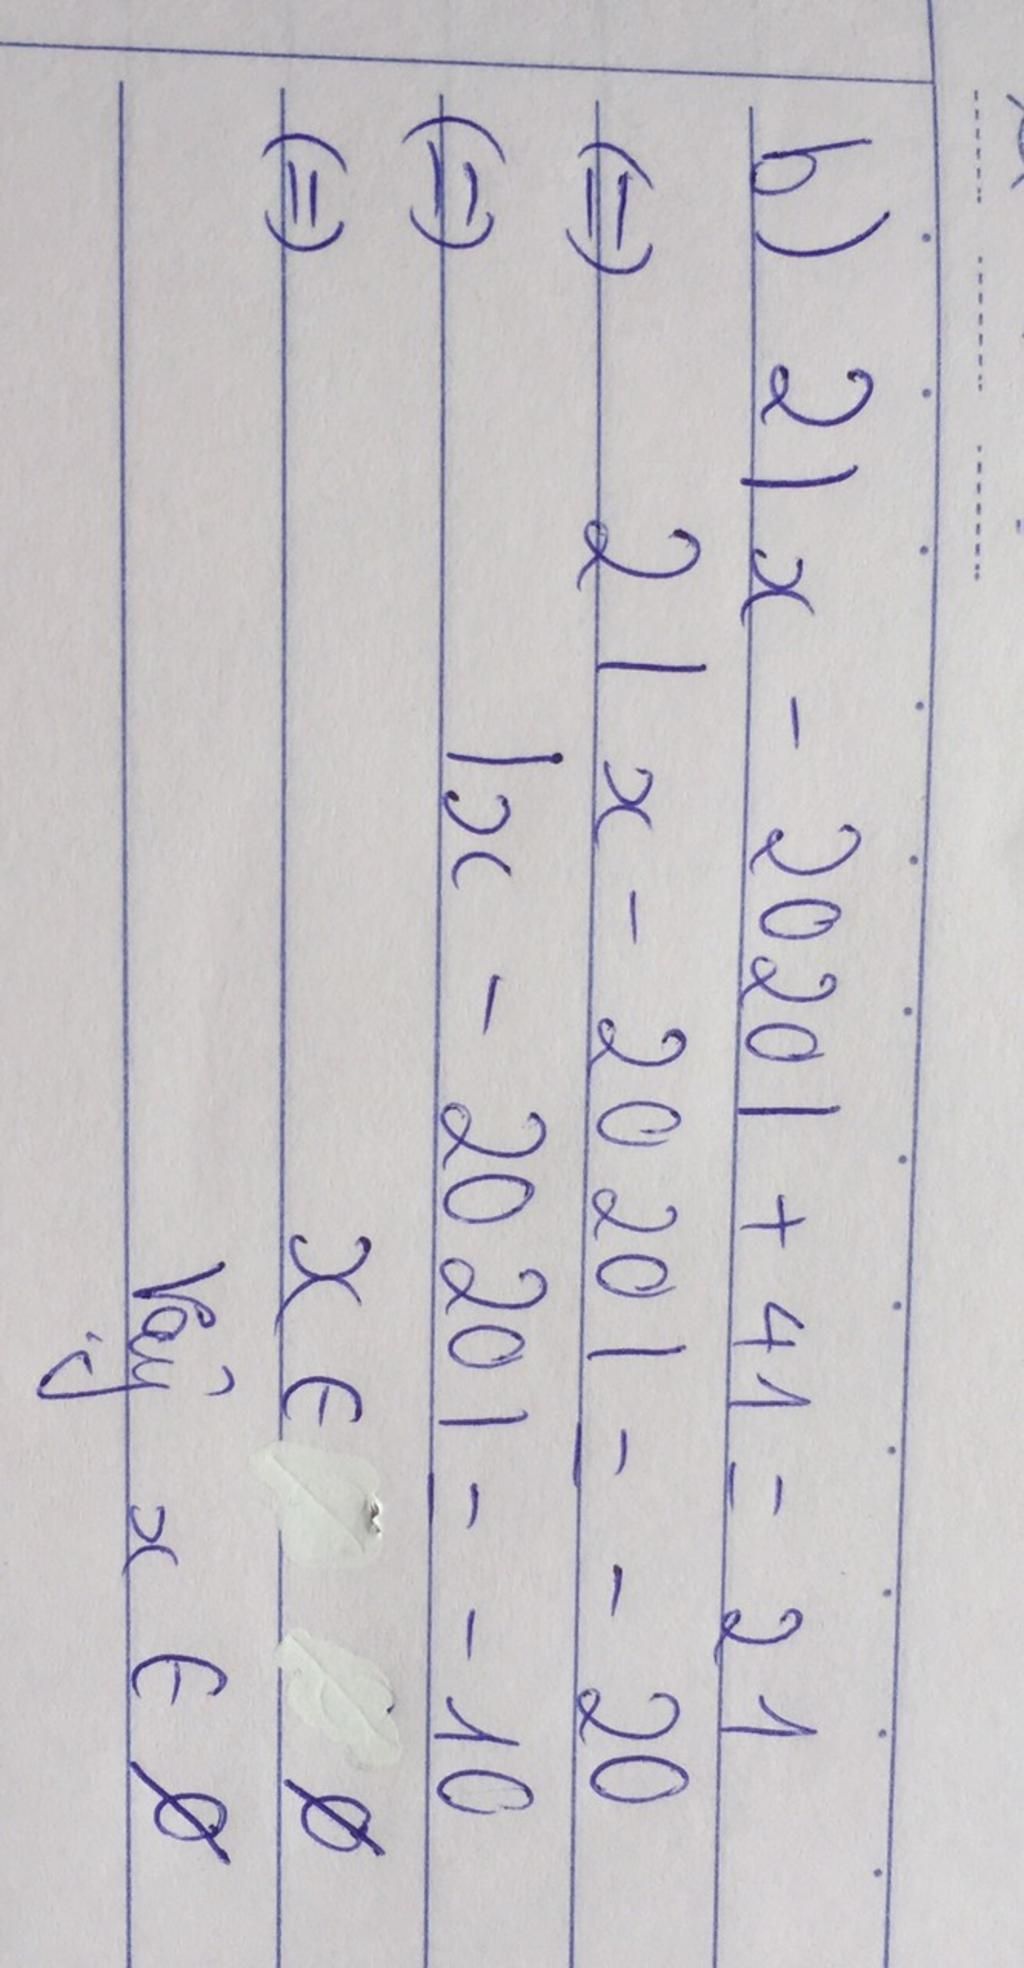 b) 2|x - 2020| + 41 = 21
(=) 2|x - 2020| = - 20
(=) |x - 2020| = - 10
(=) x ∈ ∅
Vậy x ∈ ∅